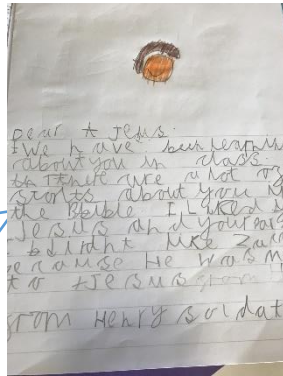 Dear A Jesus.
We have bun learnin
about you in class.
there are a lot of
storis about you
the Bbible I Liked
Jesus and your
I didnt like Zac
because He was m
to Jesus
from Henry soldat